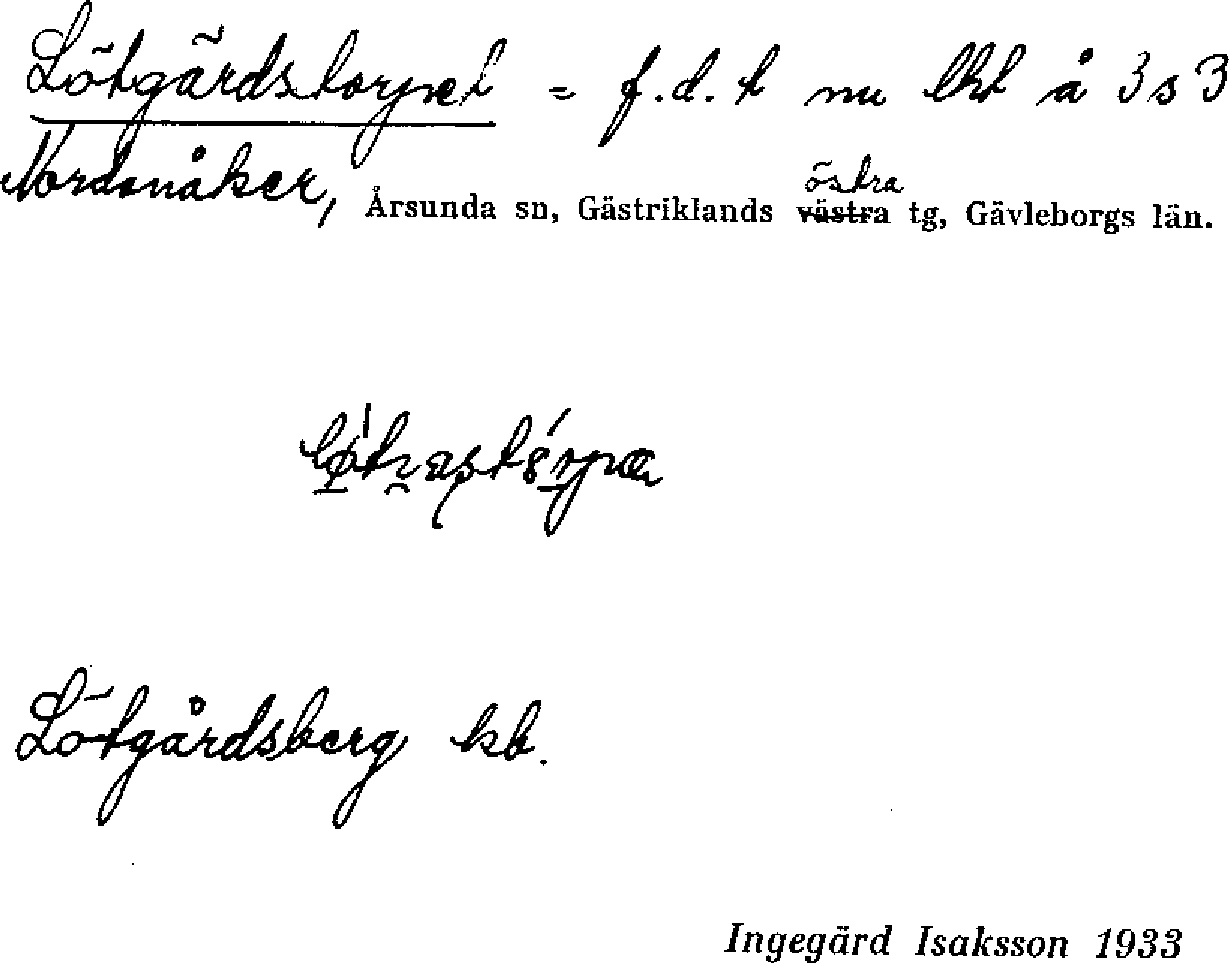 Lötgärdstorpet = f.d. t nu lht å 3 s 3
Nordanåker, Årsunda sn, Gästriklands östra västra tg, Gävleborgs län.
Lötgårdsberg kb.
Ingegärd Isaksson 1933